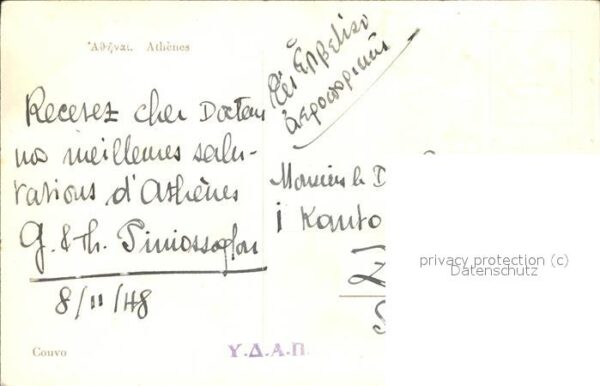 Ἀθῆναι. Athènes
Recevez cher Docteur
nos meilleures salu-
tations d'Athènes
G. & Th.
8/11/48
Couvo
Ἐλβετίαν
ἀεροπορικῶς
Monsieur le D
i Kanto
privacy protection (c)
Datenschutz
Υ.Δ.Α.Π.